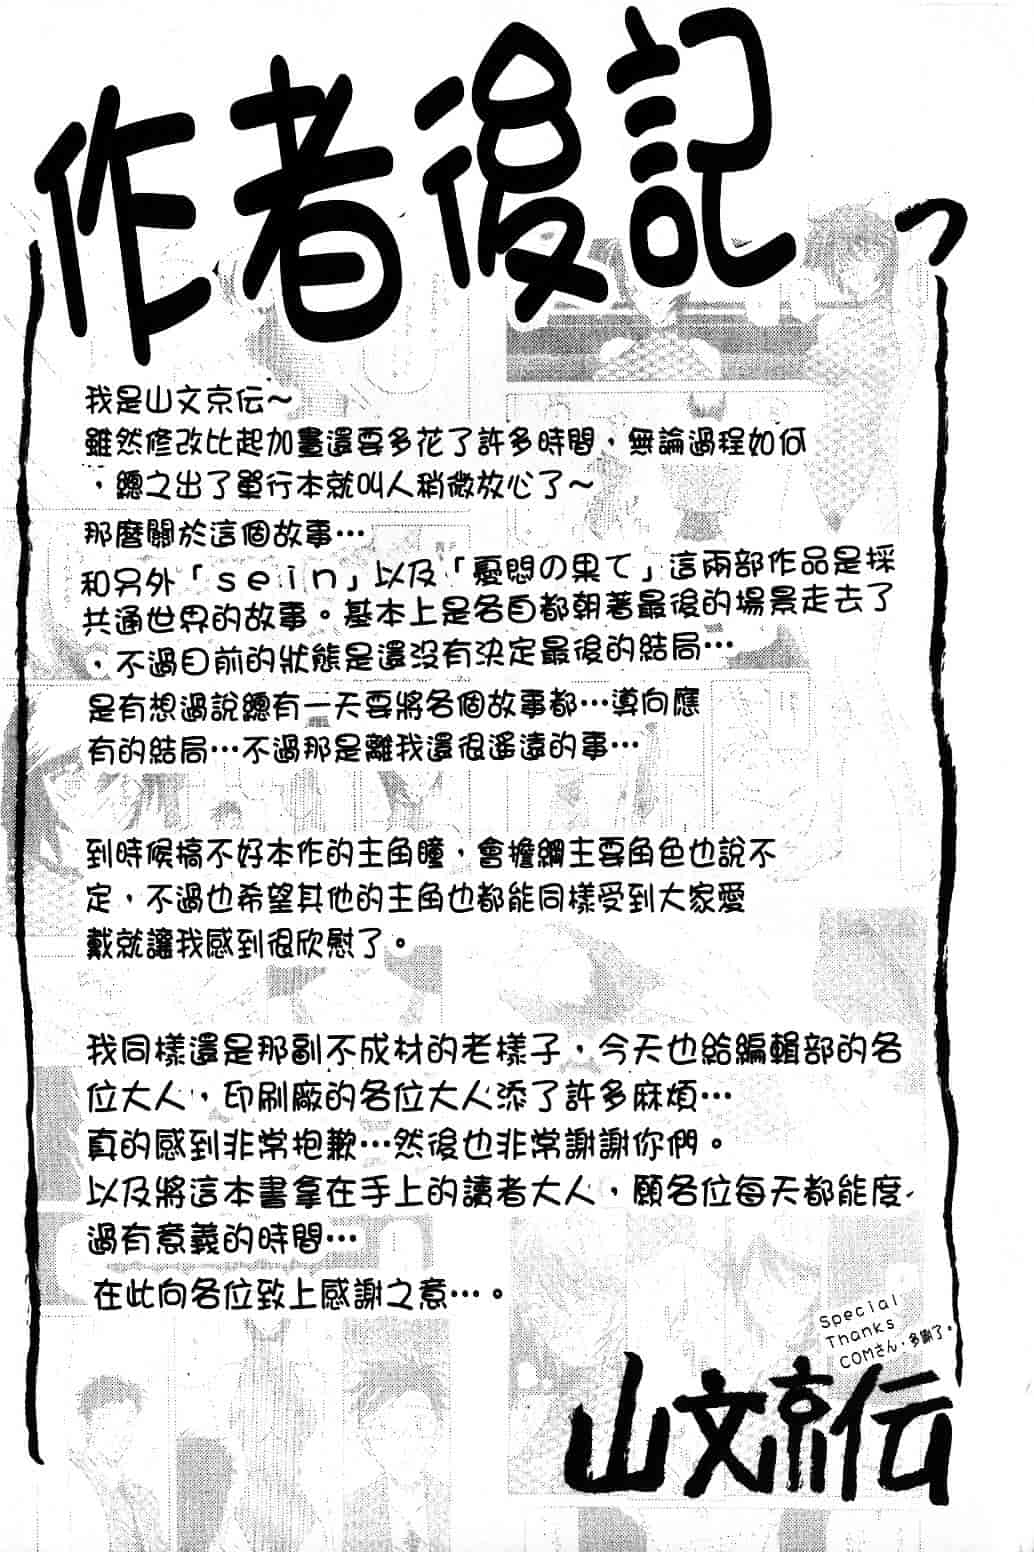 作者後記
我是山文京伝～
雖然修改比起加畫還要多花了許多時間，無論過程如何
，總之出了單行本就叫人稍微放心了～
那麼關於這個故事…
和另外「ｓｅｉｎ」以及「憂悶の果て」這兩部作品是採
共通世界的故事。基本上是各自都朝著最後的場景走去了
，不過目前的狀態是還沒有決定最後的結局…
是有想過說總有一天要將各個故事都…導向應
有的結局…不過那是離我還很遙遠的事…
到時候搞不好本作的主角瞳，會擔綱主要角色也說不
定，不過也希望其他的主角也都能同樣受到大家愛
戴就讓我感到很欣慰了。
我同樣還是那副不成材的老樣子，今天也給編輯部的各
位大人，印刷廠的各位大人添了許多麻煩…
真的感到非常抱歉…然後也非常謝謝你們。
以及將這本書拿在手上的讀者大人，願各位每天都能度
過有意義的時間…
在此向各位致上感謝之意…。
Special
Thanks
COMさん，多謝了。
山文京伝